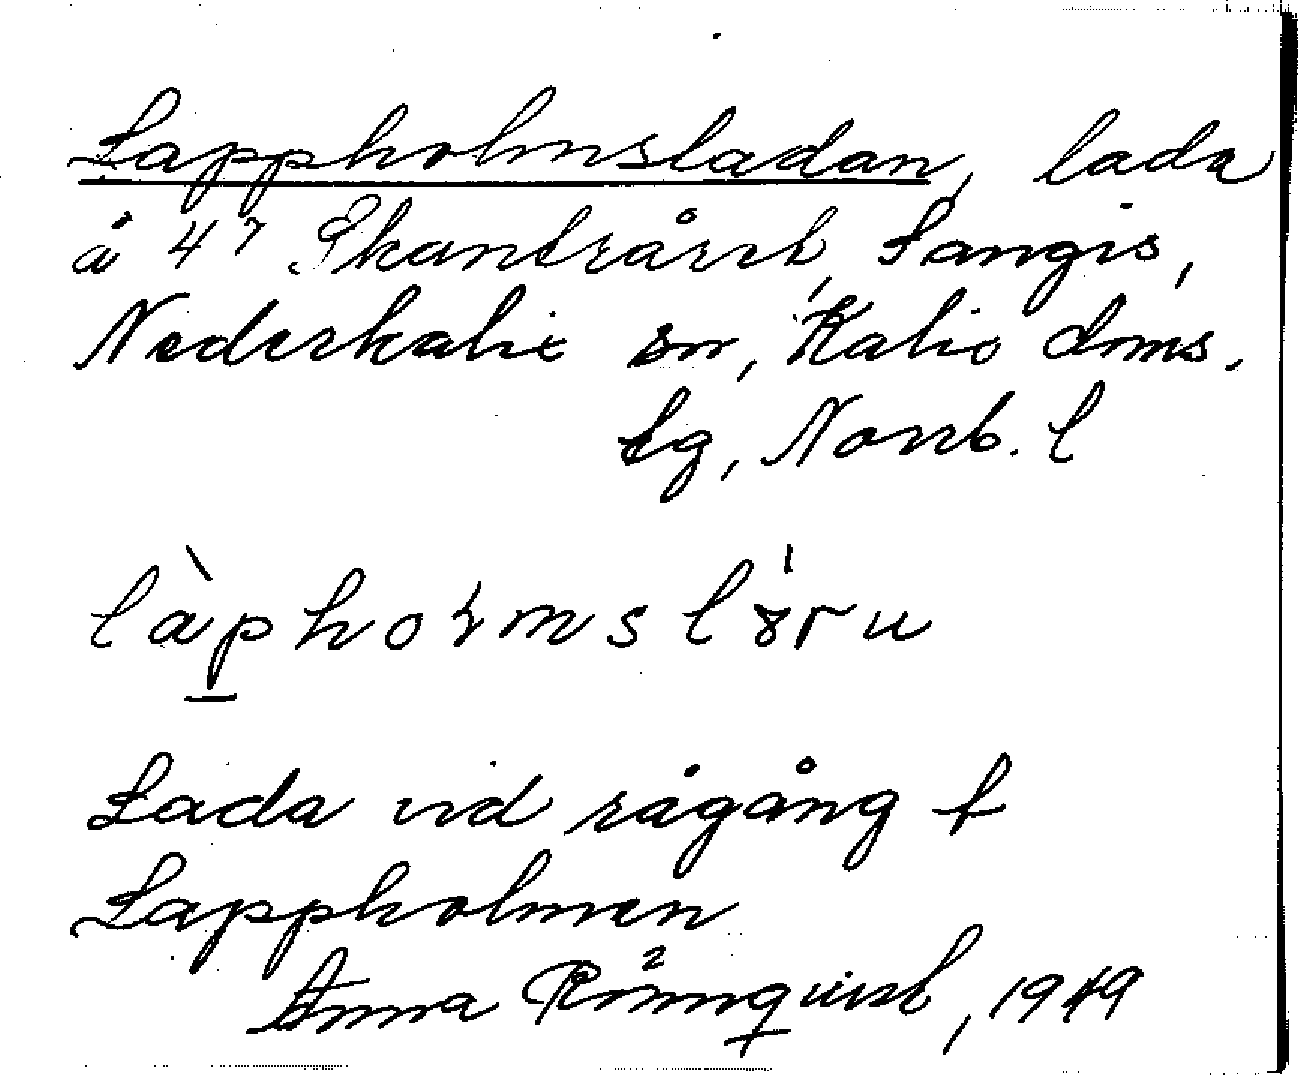 Lappholmsladan, lada
å 4⁷ Skamträsk, Sangis,
Nederkalix sn, Kalix doms.
tg, Norrb. l
làphormslöru
Lada vid rågång t
Lappholmen
Anna Rönnqvist, 1949